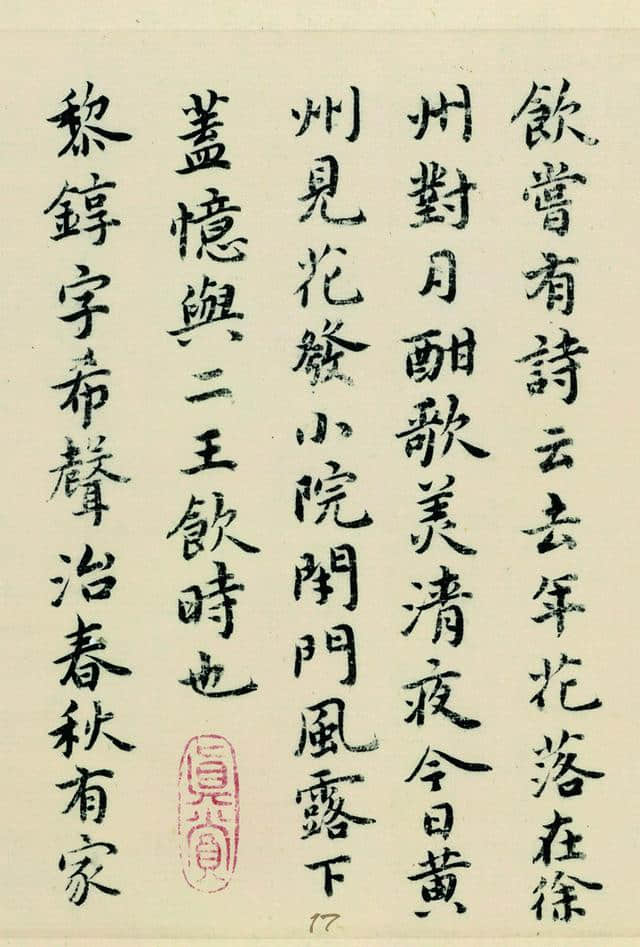 飲嘗有詩云去年花落在徐
州對月酣歌美清夜今日黃
州見花發小院閉門風露下
蓋憶與二王飲時也
黎錞字希聲治春秋有家
真賞
17